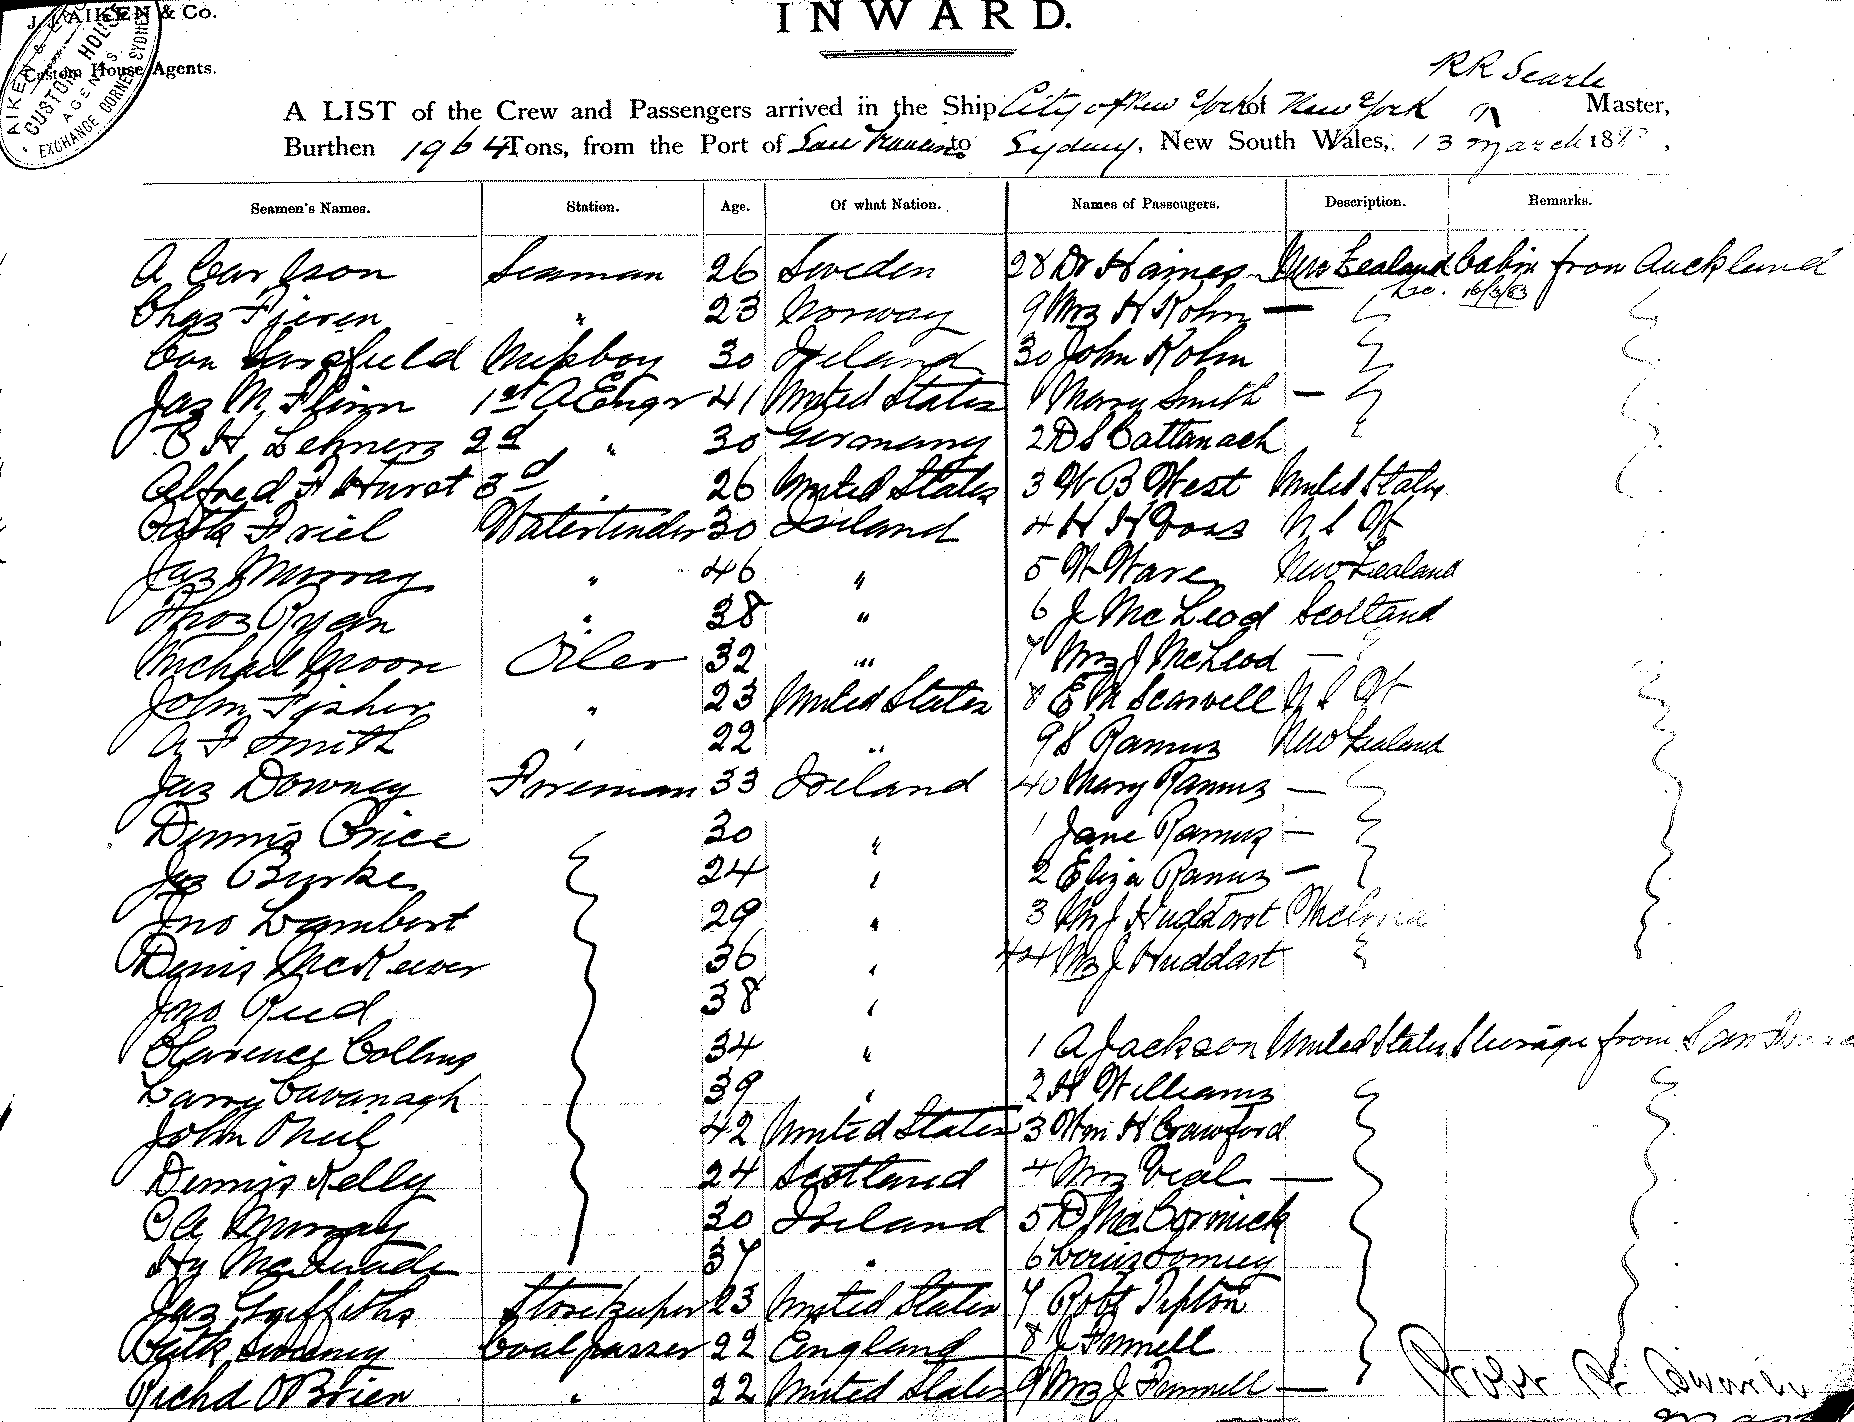 J. J. AIKEN & Co.
Custom House Agents.
AIKEN & CUSTOM HOUSE AGENTS. EXCHANGE CORNER SYDNEY
INWARD.
R R Searle
A LIST of the Crew and Passengers arrived in the Ship City of New York of New York Master,
Burthen 1964 Tons, from the Port of San Francisco to Sydney, New South Wales, 13 March 188
Seamen's Names. Station. Age. Of what Nation. Names of Passengers. Description. Remarks.
A Carlson Seaman 26 Sweden 28 Dr Haines New Zealand Cabin from Auckland
Chas " 23 Norway 9 Mrs H Kohn — 16/3/83
Con Messboy 30 Ireland 30 John Kohn
Jas M Flinn 1st A Engr 41 United States 1 Mary Smith —
C H Lehners 2d " 30 Germany 2 D S Cattanach
Alfred F Hurst 3d " 26 United States 3 W B West United States
Patk Friel Watertender 30 Ireland 4 H H N S W
Jas Murray " 46 " 5 W Ware New Zealand
Thos Ryan " 38 " 6 J McLeod Scotland
Michael Moore Oiler 32 " 7 Mrs J McLeod —
John Fisher " 23 United States 8 E M N S W
A F Smith " 22 " 9 S Ramus New Zealand
Jas Downey Fireman 33 Ireland 40 Mary Ramus —
Dennis Price 30 " 1 Jane Ramus —
Jas Burke 24 " 2 Eliza Ramus —
Jno Lambert 29 " 3 Mr J Huddart
Denis McKeever 36 " 44 Mrs J Huddart
Jno Reed 38 "
Clarence Collins 34 " 1 A Jackson United States Steerage from San
Larry Cavanagh 39 " 2 H Williams
John O'Neil 42 United States 3 Wm H Crawford
Dennis Kelly 24 Scotland 4 Mrs Veal —
Murray 30 Ireland 5 D McCormick
Hy McQuade 37 " 6 Louis
Jas Griffiths Storekeeper 23 United States 7 Robt Tipton
Patk Sweeney Coalpasser 22 England 8 J Funnell
Richd O'Brien " 22 United States 9 Mrs J Funnell —
Robt R Searle